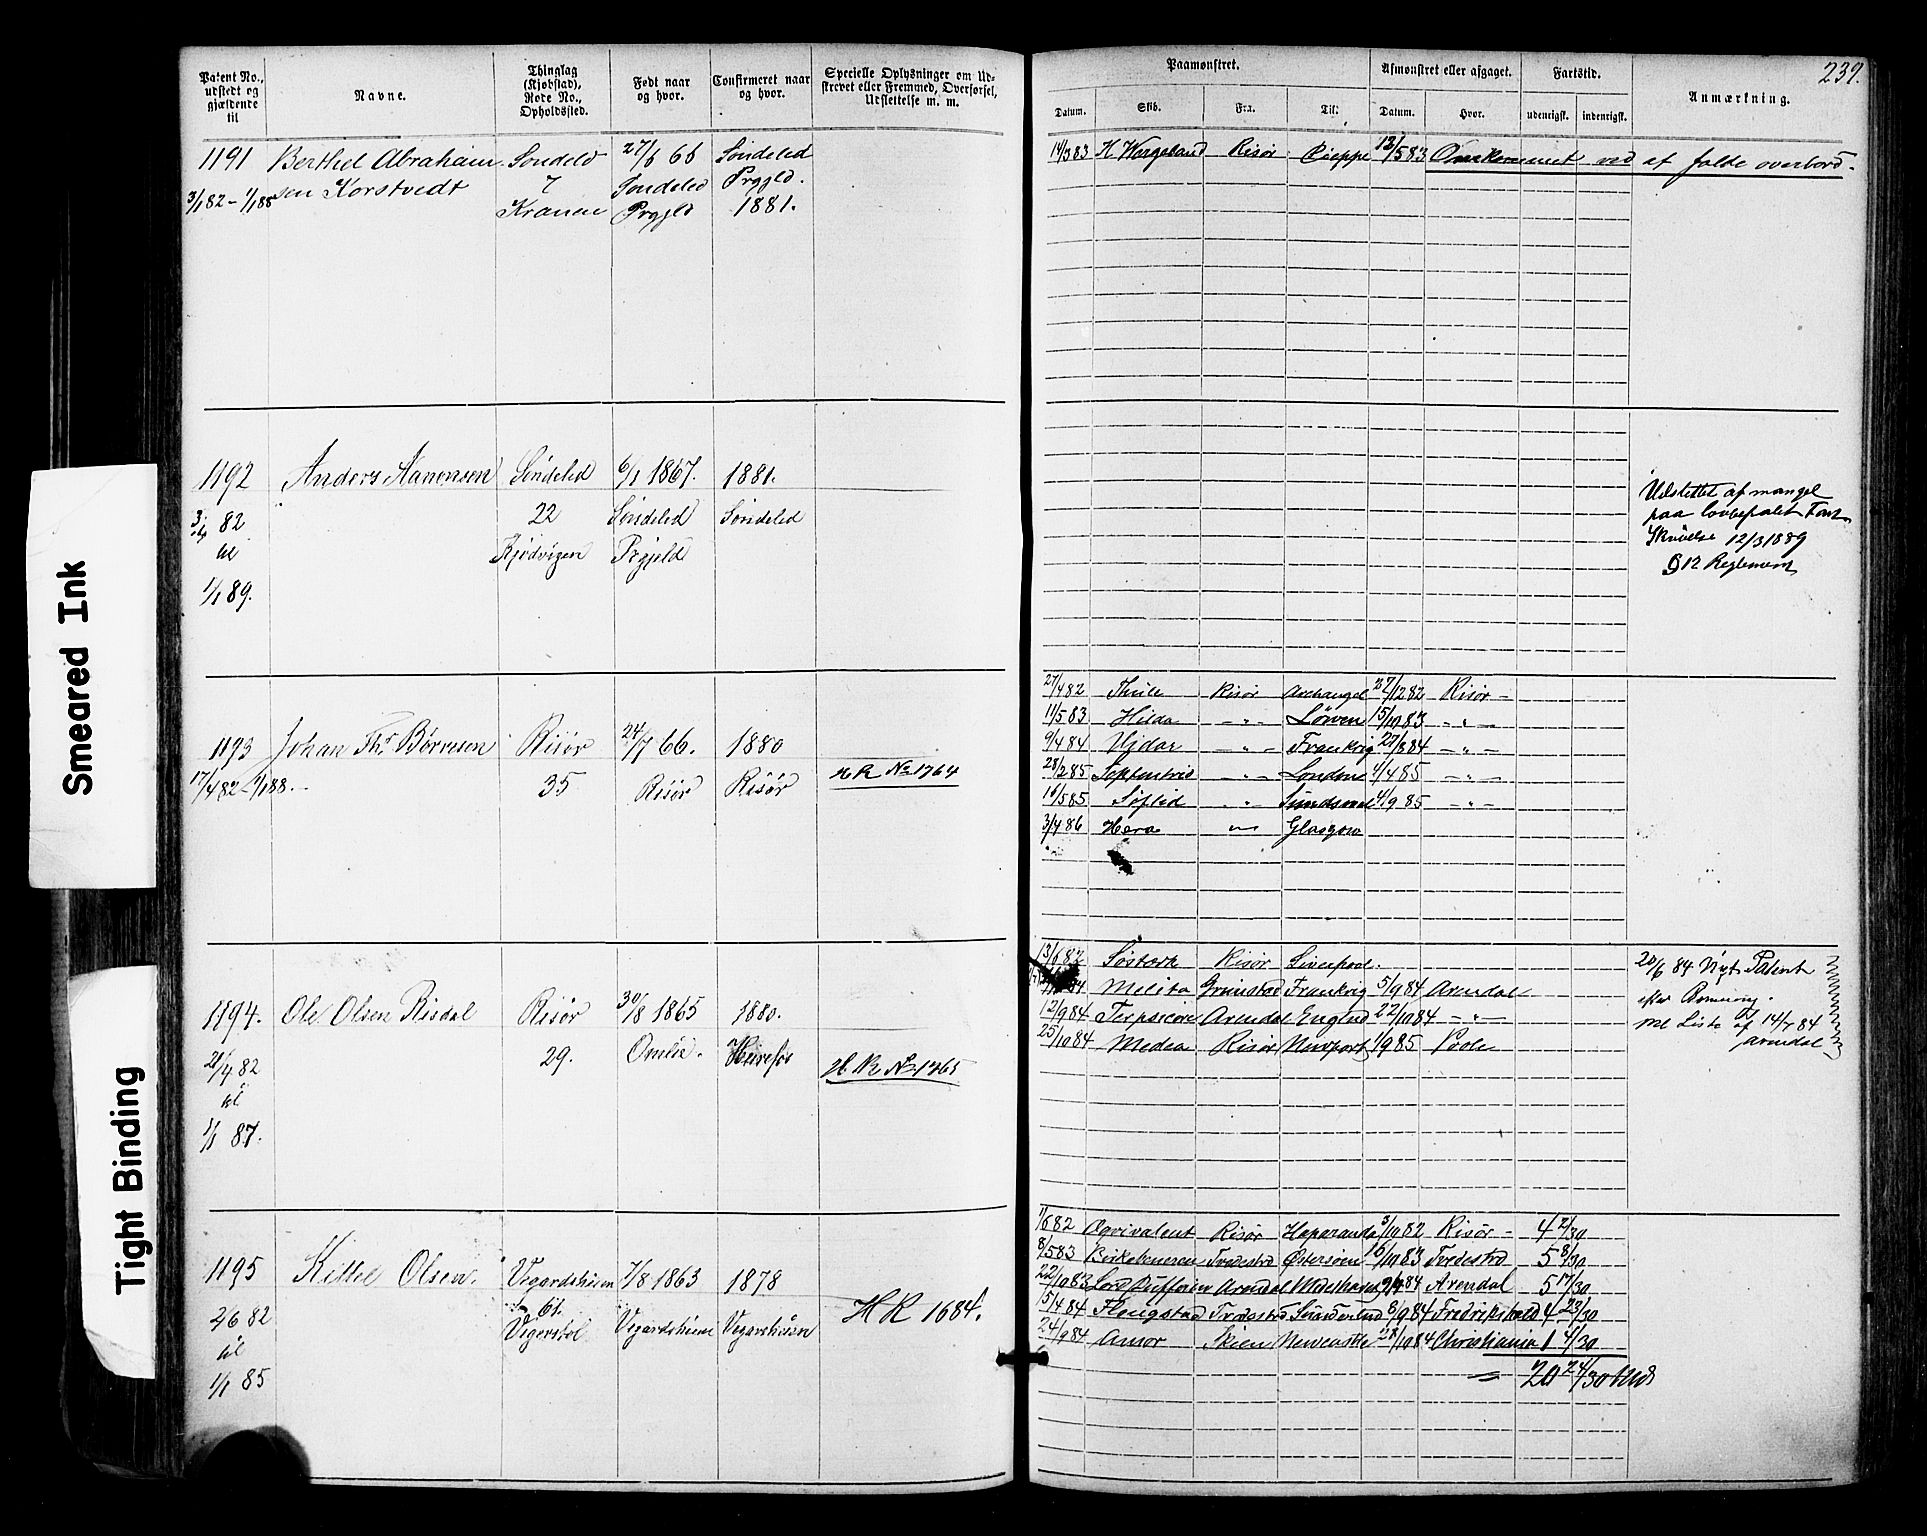 Smeared Ink
Tight Binding
239.
Patent No., udstedt og gjældende til
Navne.
Thinglag (Kjøbstad), Rode No., Opholdssted.
Født naar og hvor.
Confirmeret naar og hvor.
Specielle Oplysninger om Udskrevet eller Fremmed, Overførsel, Udslettelse m. m.
Paamønstret.
Afmønstret eller afgaaet.
Fartstid.
Anmærkning.
Datum. Skib. Fra. Til. Datum. Hvor. udenrigsk. indenrigsk.
1191 Berthel Abraham Søndeled 27/6 66 Søndeled
3/1 82 - 1/1 88 sen Korstvedt 7 Søndeled Prgjld.
Kranen Prgjld 1881.
14/3 83 H. Wergeland Risør Dieppe 12/5 83 Omkommet ved at falde overbord.
1192 Anders Aanensen Søndeled 6/1 1867. 1881.
82 22 Søndeled Søndeled
til Kjødvigen Prgjeld
1/1 89.
Udslettet af mangel
paa lovbefalet Fart
Skrivelse 12/3 1889
§12 Reglement
1193 Johan Ths Børresen Risør 24/7 66. 1880
17/4 82 - 1/1 88. 35 Risør Risør H R No 1764
27/4 82 Thule Risør Archangel 27/12 82 Risør -
11/5 83 Hilda - " - Løwen 15/10 83 - " -
9/4 84 Vidar - " - Frankrig 27/8 84 - " -
28/2 85 - " - London 1/4 85 - " -
16/5 85 Søflid " Sundsval 4/9 85 - " -
3/4 86 Hera " Glasgow
1194. Ole Olsen Risdal Risør 30/8 1865 1880.
21/4 82 29. Omlie. H R No 1765
til
1/1 87.
13/6 82 Søstærk Risør Liverpool.
84 Melita Grimstad Frankrig 5/9 84 Arendal
12/9 84 Terpsicore Arendal Englnd 22/10 84 - " -
25/10 84 Medea Risør Newport 1/9 85 Poole
20/6 84 Nyt Patent
efter Rømning.
Arendal
1195 Kittel Olsen. Vegardshien 7/8 1863 1878
2/6 82 61. Vegardshien Vegardshien H R 1684.
til Vigerstøl
1/1 85
1/6 82 Æqvivalent Risør Haparanda 3/10 82 Risør - 4 2/30
8/5 83 Birkebeneren Tvedestrd Østersøen 16/10 83 Tvedestrd 5 8/30
22/10 83 Lord Dufferin Arendal 84 Arendal 5 17/30
15/4 84 Flougstad Tvedestrd Sunderland 8/9 84 Fredrikshald 4 23/30
24/9 84 Amor Skien Newcastle 28/10 84 Christiania 1 4/30
= 20 24/30 Mdr